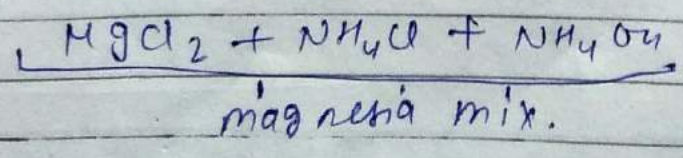 MgCl₂ + NH₄Cl + NH₄OH
magnesia mix.